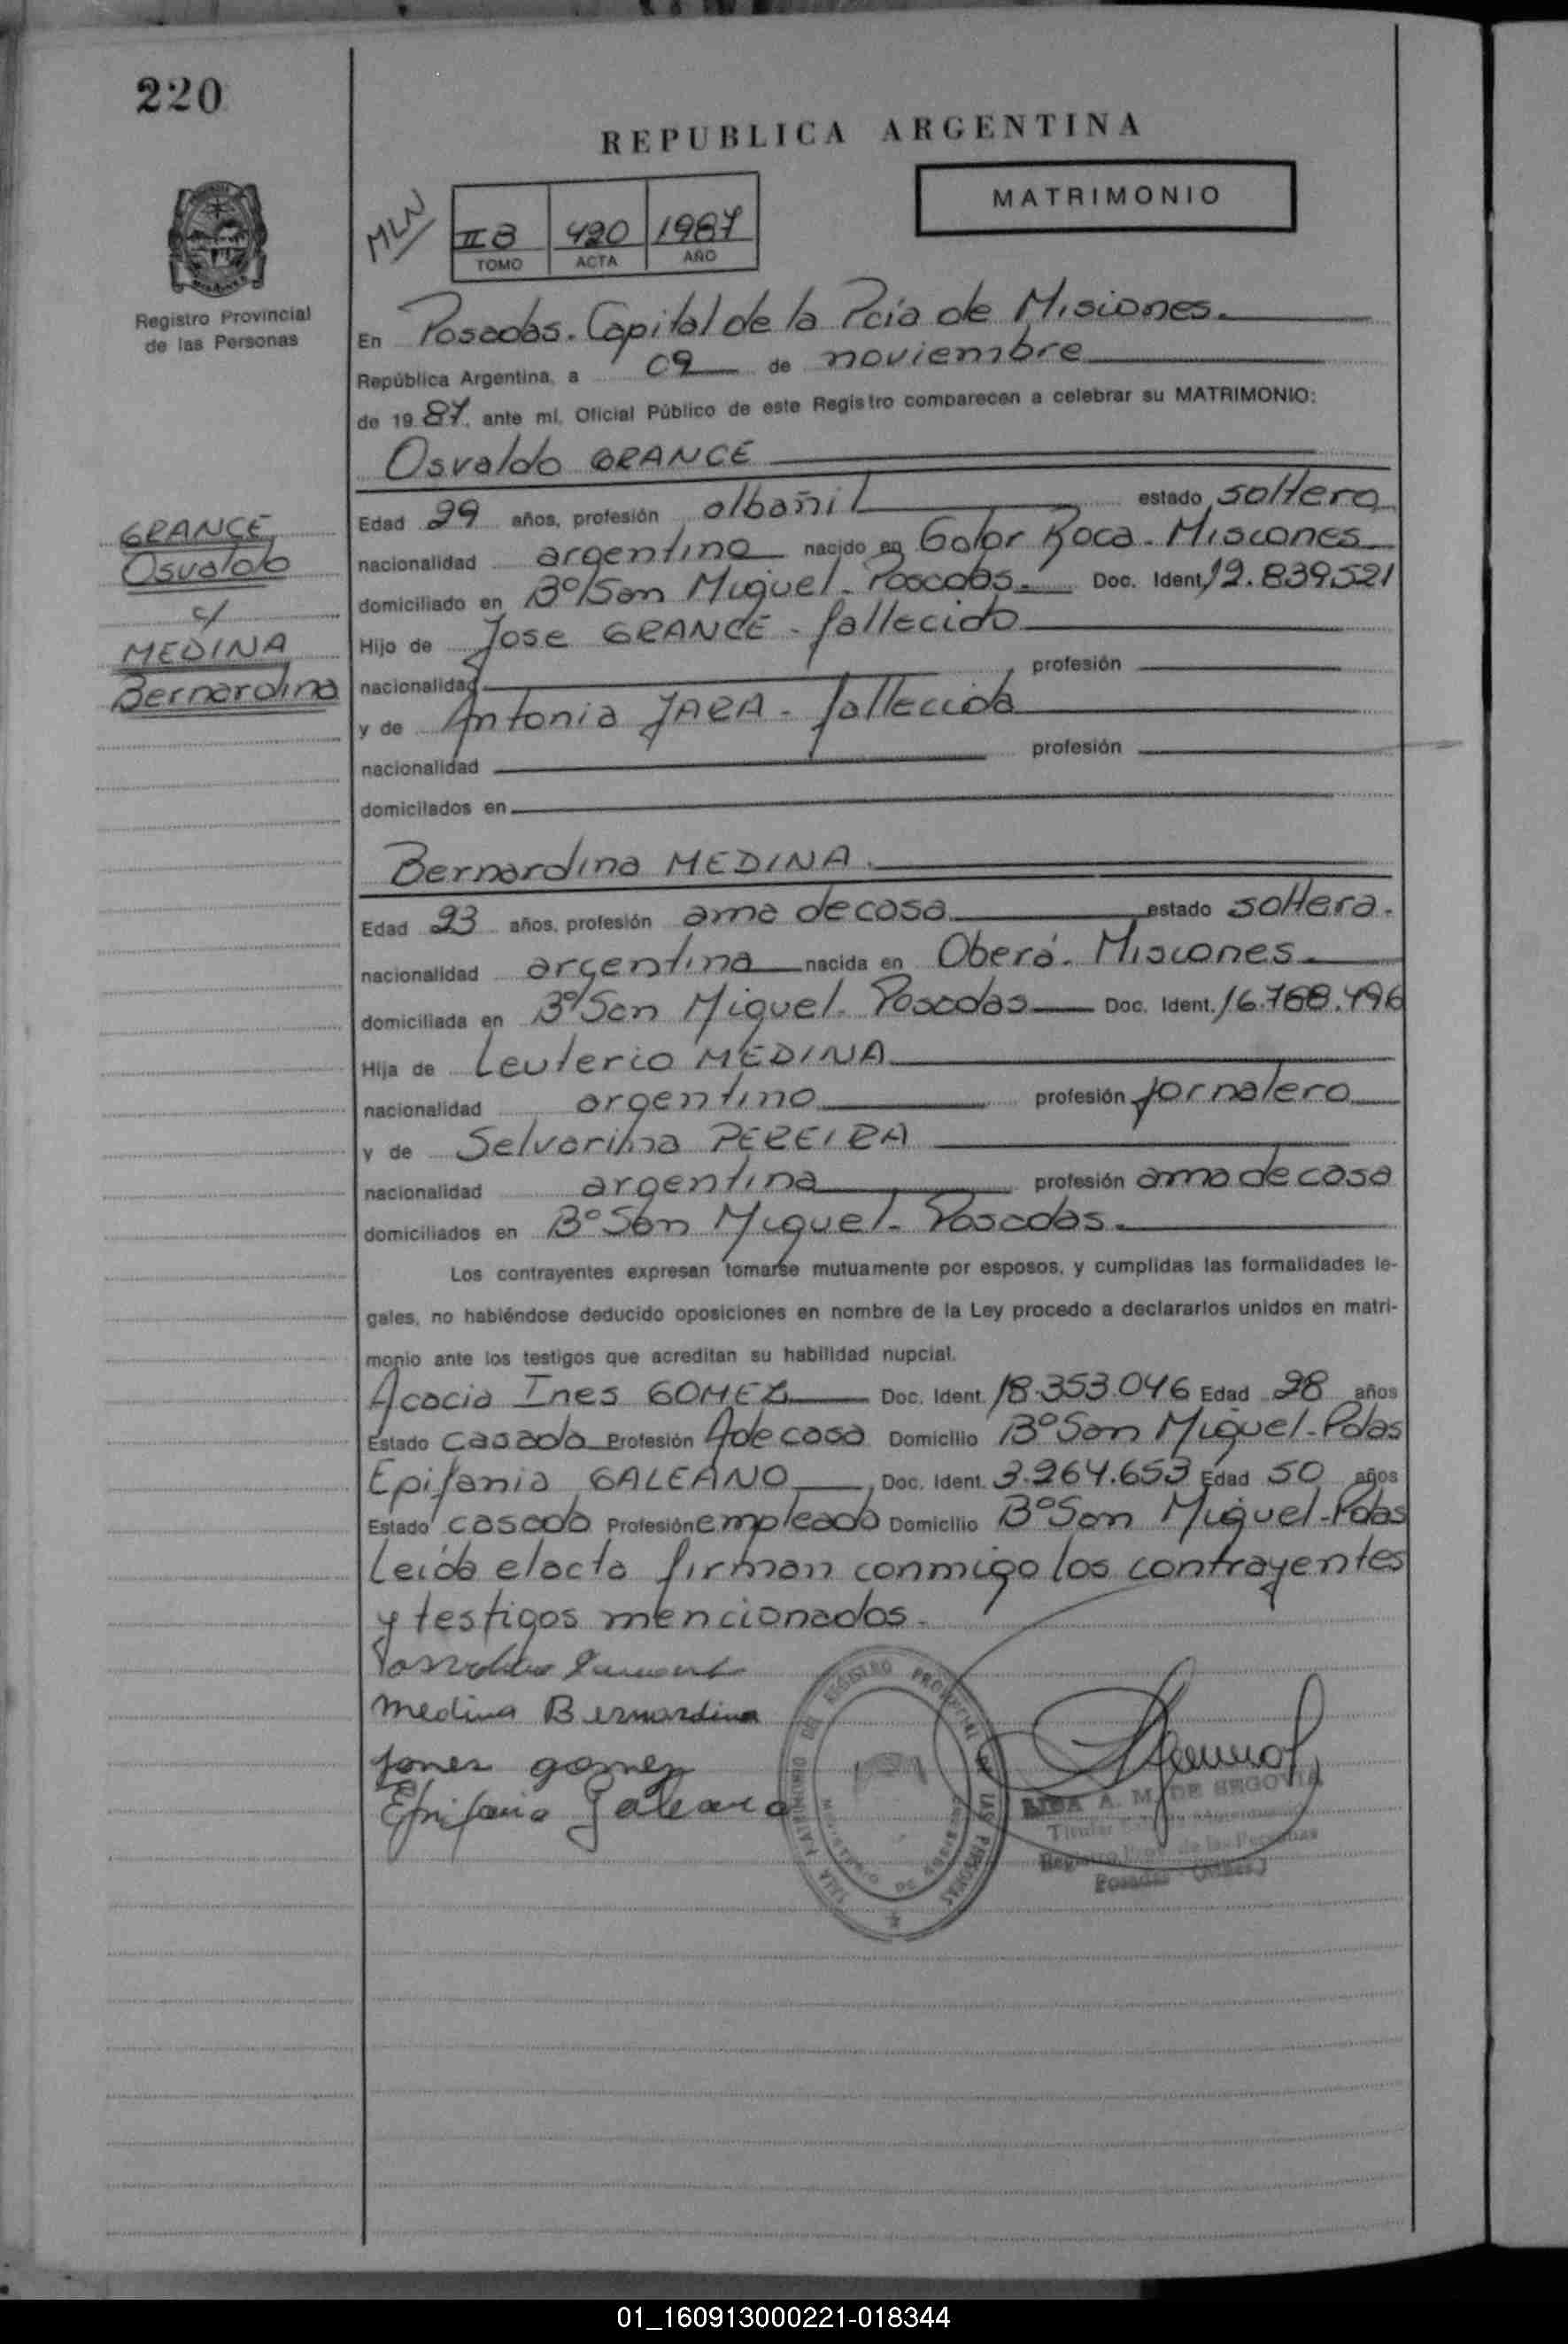 220
REPUBLICA ARGENTINA
MATRIMONIO
MLN
II B 420 1987
TOMO ACTA AÑO
Registro Provincial
de las Personas
En Posadas. Capital de la Pcia de Misiones.
República Argentina, a 09 de noviembre
de 19 87, ante mí, Oficial Público de este Registro comparecen a celebrar su MATRIMONIO:
Osvaldo GRANCE
GRANCE
Osvaldo
c/
MEDINA
Bernardina
Edad 29 años, profesión albañil estado soltero
nacionalidad argentino nacido en Gdor Roca - Misiones
domiciliado en Bº San Miguel - Posadas. Doc. Ident. 12.839.521
Hijo de Jose GRANCE - fallecido
nacionalidad profesión
y de Antonia JARA - fallecida
nacionalidad profesión
domicilados en
Bernardina MEDINA.
Edad 23 años, profesión ama de casa estado soltera.
nacionalidad argentina nacida en Oberá - Misiones.
domiciliada en Bº San Miguel - Posadas Doc. Ident. 16.768.496
Hija de Leuterio MEDINA
nacionalidad argentino profesión jornalero
y de Selvarina PEREIRA
nacionalidad argentina profesión ama de casa
domiciliados en Bº San Miguel - Posadas.
Los contrayentes expresan tomarse mutuamente por esposos, y cumplidas las formalidades le-
gales, no habiéndose deducido oposiciones en nombre de la Ley procedo a declararlos unidos en matri-
monio ante los testigos que acreditan su habilidad nupcial.
Acacia Ines GOMEZ Doc. Ident. 18.353.046 Edad 28 años
Estado casada Profesión A de casa Domicilio Bº San Miguel - Pdas
Epifania GALEANO Doc. Ident. 3.264.653 Edad 50 años
Estado casada Profesión empleada Domicilio Bº San Miguel - Pdas
Leída el acta firman conmigo los contrayentes
y testigos mencionados.
Medina Bernardina
gomez
Epifania Galeano
REGISTRO PROVINCIAL DE LAS PERSONAS
A. M. DE SEGOVIA
Titular
Registro Prov. de las Personas
Posadas - (Mnes)
01_160913000221-018344